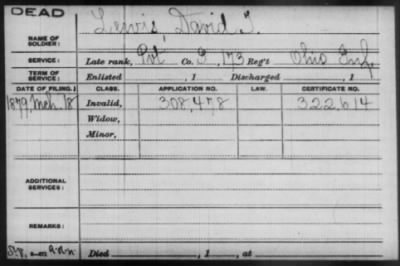 DEAD
Lewis, David T.
NAME OF SOLDIER:
SERVICE: Late rank, Pvt Co. G, 173 Reg't Ohio Inf
TERM OF SERVICE: Enlisted , 1 Discharged , 1
DATE OF FILING. CLASS. APPLICATION NO. LAW. CERTIFICATE NO.
1879, Mch. 18 Invalid, 308,478 322614
Widow,
Minor,
ADDITIONAL SERVICES:
REMARKS:
Died , 1 , at